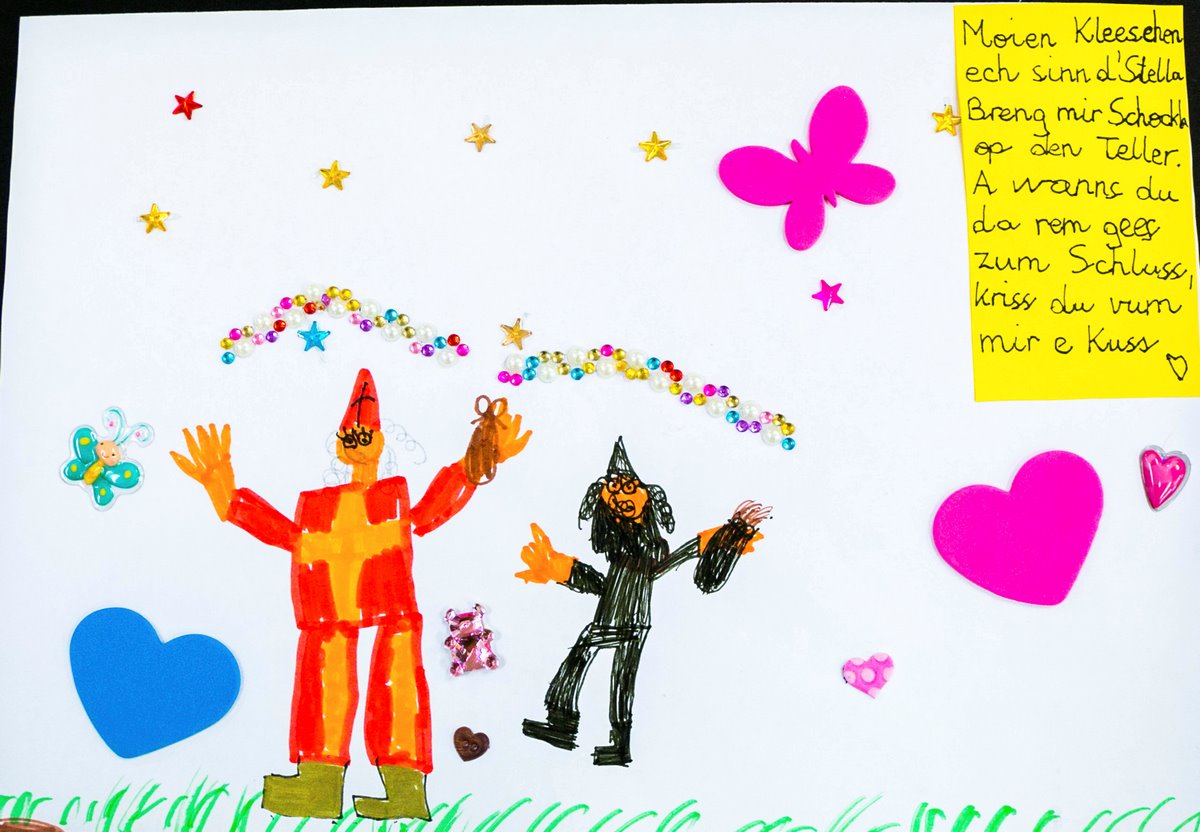 Moien Kleeschen
ech sinn d'Stella
Breng mir Schockla
op den Teller.
A wanns du
da rem gees
zum Schluss,
kriss du vum
mir e Kuss